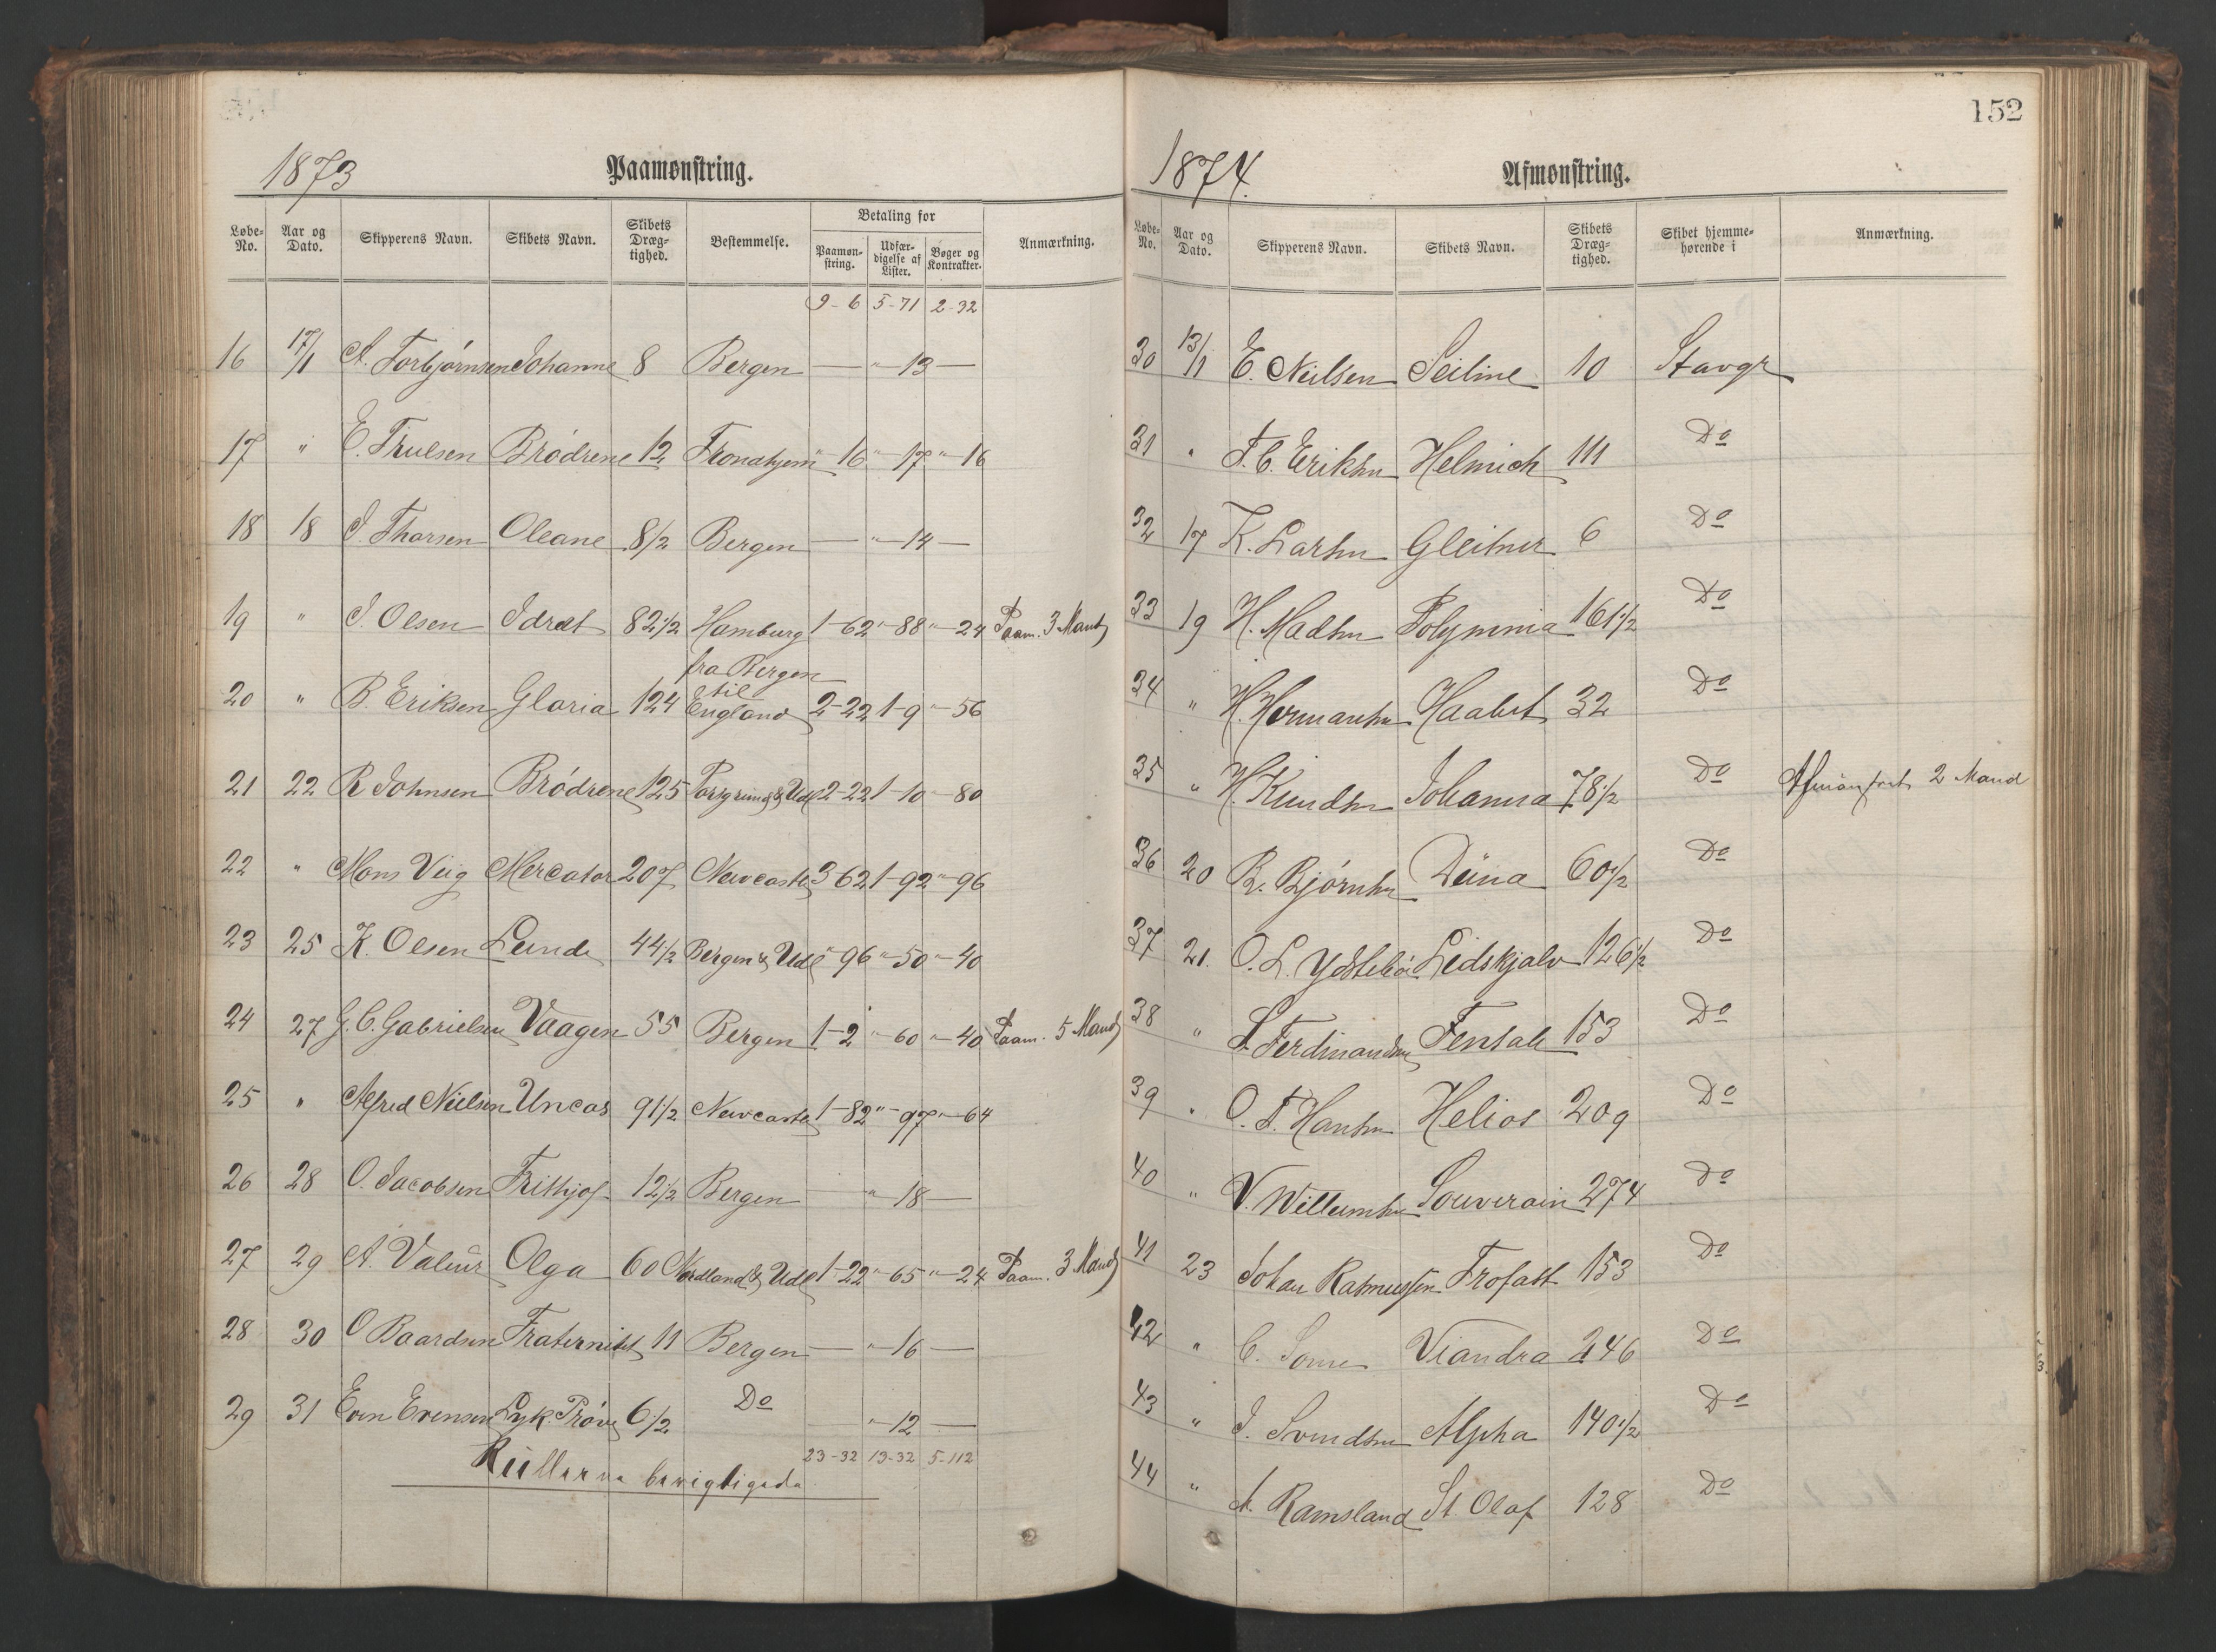 1873 Paamønstring.
Løbe-No. Aar og Dato. Skipperens Navn. Skibets Navn. Skibets Dræg-tighed. Bestemmelse. Betaling for Paamøn-string. Udfær-digelse af Lister. Bøger og Kontrakter. Anmærkning.
9-6 5-71 2-32
16 17/1 A. Torbjørnsen Johanne 8 Bergen — " 13 —
17 " E. Trulsen Brødrene 12 Trondhjem " 16 " 17 " 16
18 18 J. Thorsen Oleane 8 1/2 Bergen — " 14 —
19 " J. Olsen Idræt 82 1/2 Hamburg 1-62 "-88 "-24 Paam. 3 Mand
20 " B. Eriksen Gloria 124 fra Bergen til England 2-22 1-9 "-56
21 22 R Johnsen Brødrene 125 Porsgrund & Udl 2-22 1-10 -80
22 " Mons Veig Mercator 207 Newcastle 3 62 1-92 "-96
23 25 K. Olsen Lunde 44 1/2 Bergen & Udl "-96 "-50 "-40
24 27 G. C. Gabrielsen Vaagen 55 Bergen 1-2 "-60 "-40 Paam. 5 Mand
25 " Alfred Nielsen Uncas 91 1/2 Newcastle 1-82 "-97 "-64
26 28 O. Jacobsen Frithjof 12 1/2 Bergen — "-18 —
27 29 A. Valeur Olga 60 Nordland & Udl 1-22 "-65 "-24 Paam. 3 Mand
28 30 O Baardsen Fraternitet 11 Bergen — "-16 —
29 31 Even Evensen Lyk. Prøve 6 1/2 Do "-12 —
23-32 13-32 5-112
Rullerne berigtigede
152
1874. Afmønstring.
Løbe-No. Aar og Dato. Skipperens Navn. Skibets Navn. Skibets Dræg-tighed. Skibet hjemme-hørende i Anmærkning.
30 13/1 E. Neilsen Seiline 10 Stavgr
31 " T. C. Eriksen Helmich 111 Do
32 17 K. Larsen Gleitner 6 Do
33 19 H. Madsen Polymnia 161 1/2 Do
34 " H. Hermansen Haabet 32 Do
35 " H. Knudsen Johanna 78 1/2 Do Afmönstret 2 Mand
36 20 B. Bjørnsen Düna 60 1/2 Do
37 21. O. L. Ydstebø Lidskjalv 126 1/2 Do
38 " S. Ferdinandsen Fensal 153 Do
39 " O. T. Hansen Helios 209 Do
40 " V. Willumsen Souverain 274 Do
41 23 Johan Rasmussen Trofast 153 Do
42 " C. Somme Viandra 246 Do
43 " J. Svendsen Alpha 140 1/2 Do
44 " A. Ramsland St. Olaf 128 Do